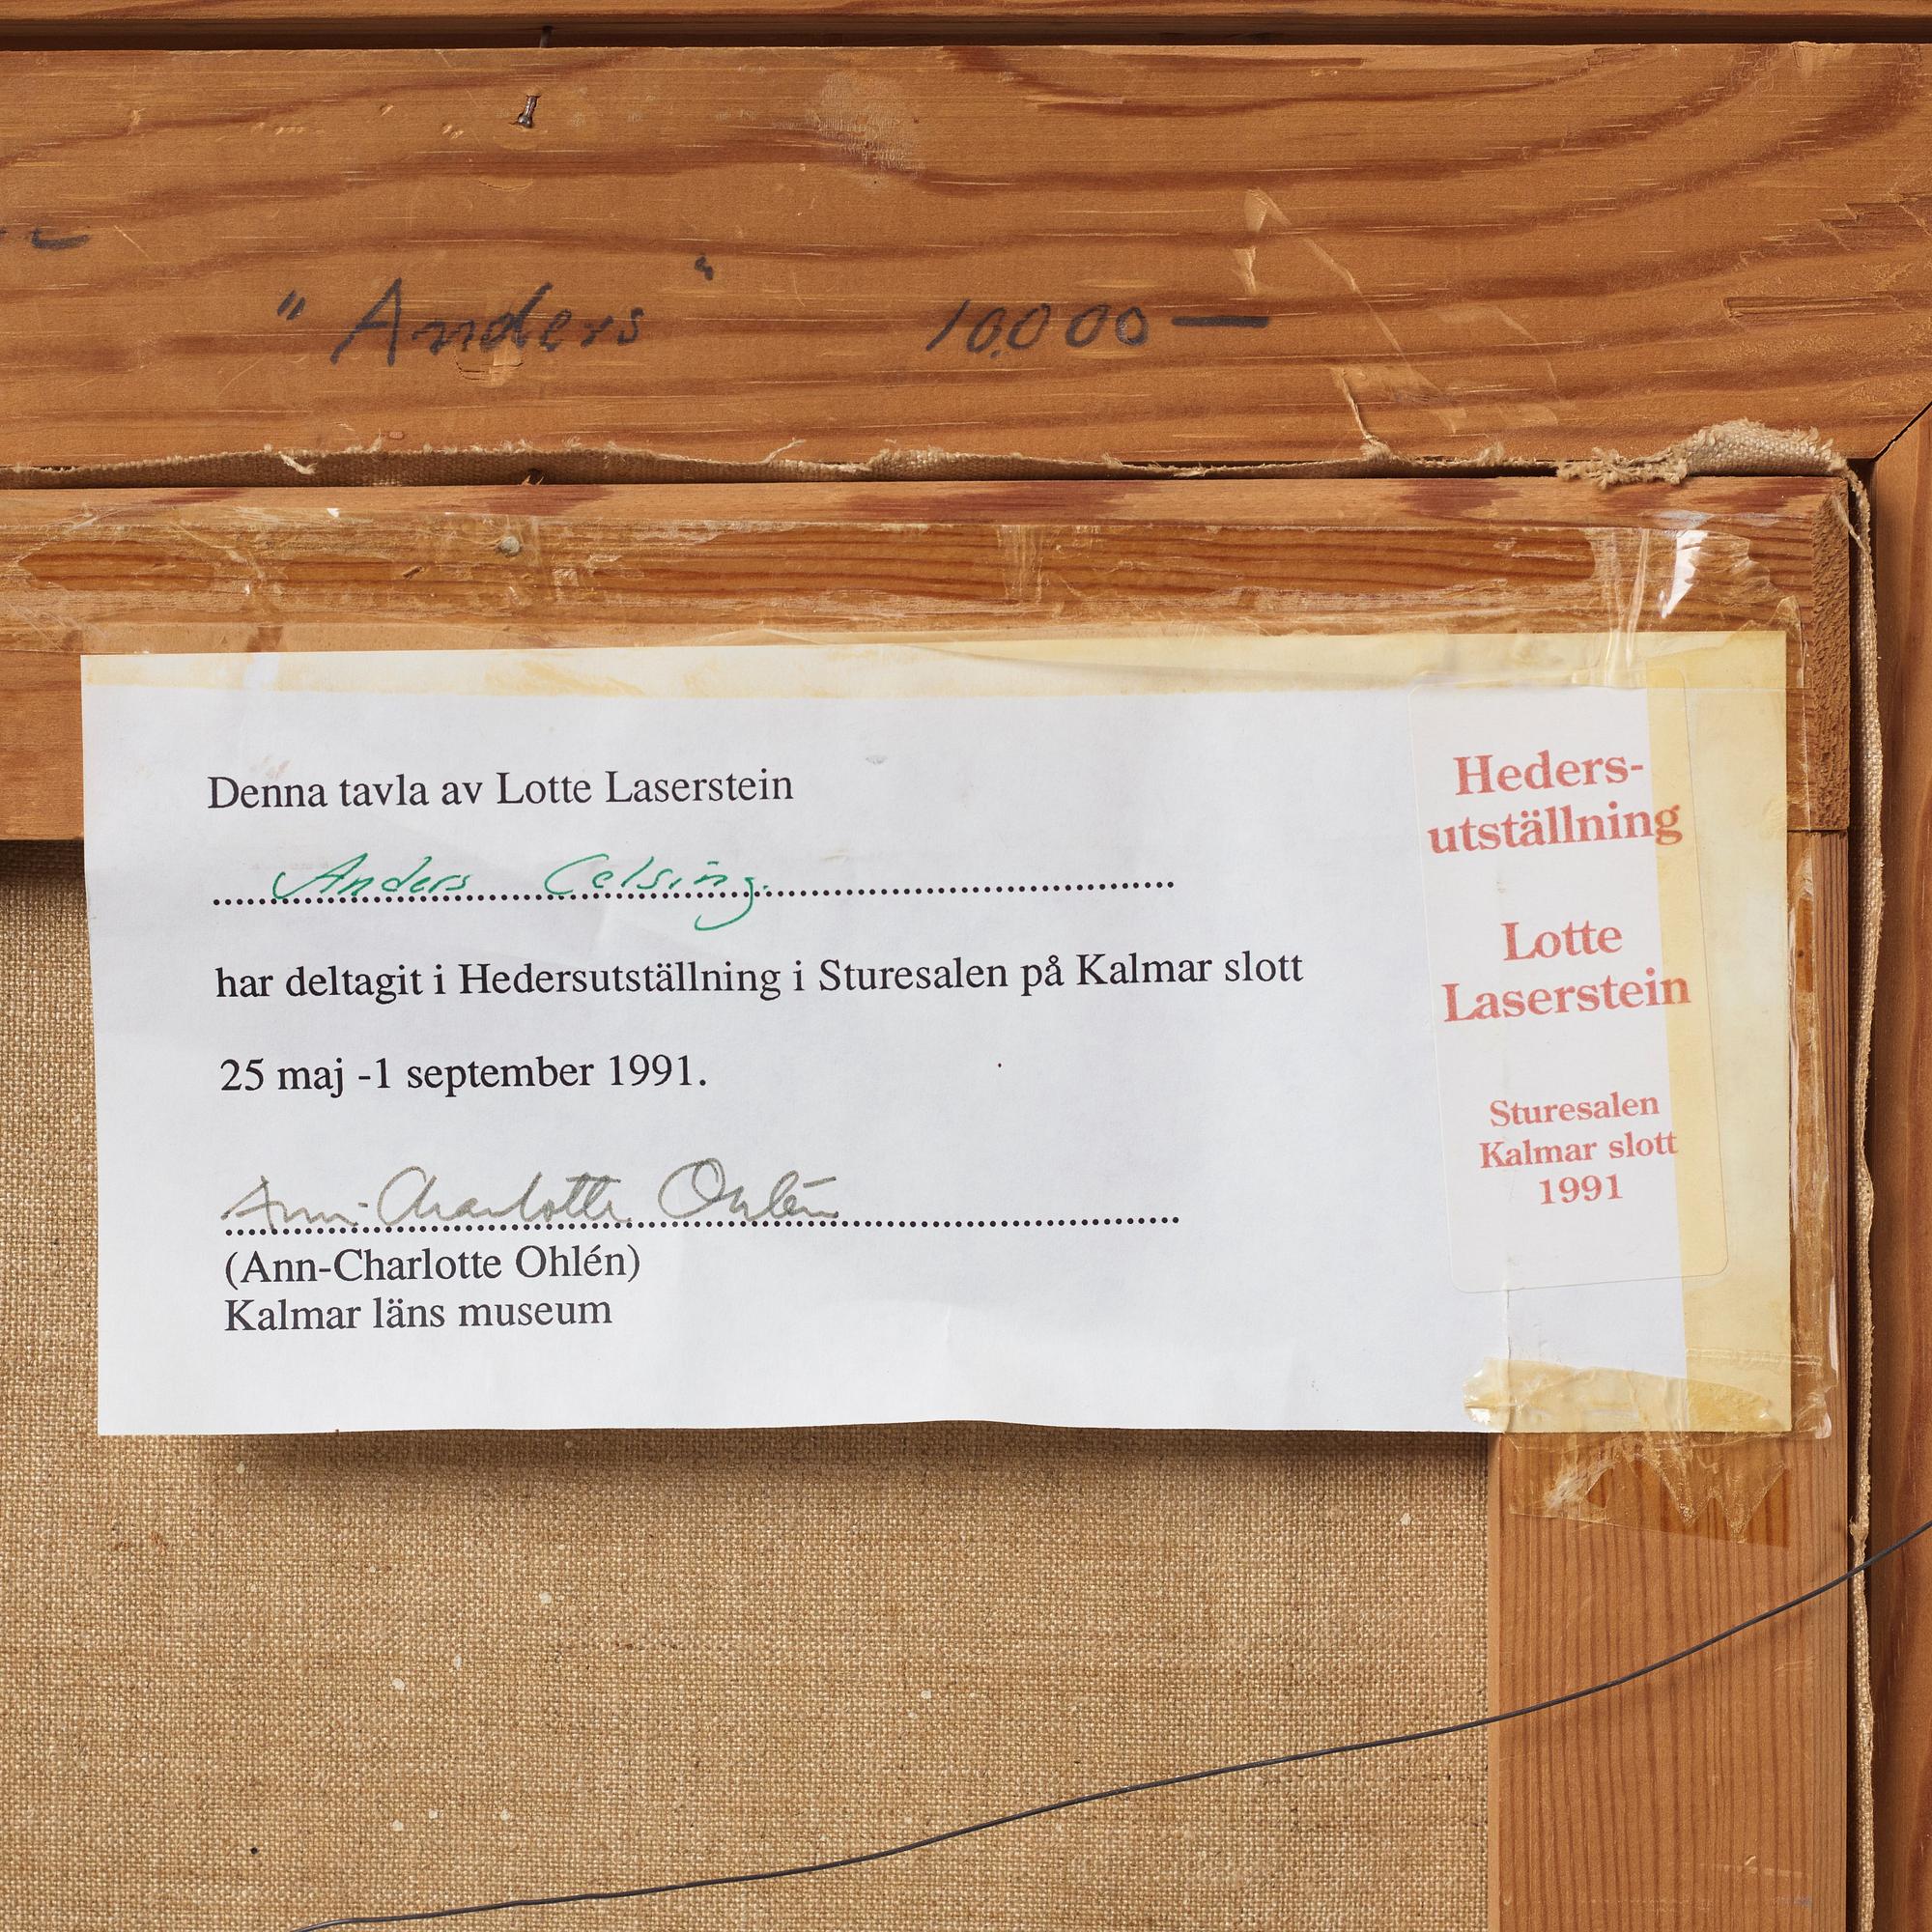 "Anders" 10.000—
Denna tavla av Lotte Laserstein
Anders Celsing.
har deltagit i Hedersutställning i Sturesalen på Kalmar slott
25 maj -1 september 1991.
Ann-Charlotte Ohlén
(Ann-Charlotte Ohlén)
Kalmar läns museum
Heders-
utställning
Lotte
Laserstein
Sturesalen
Kalmar slott
1991